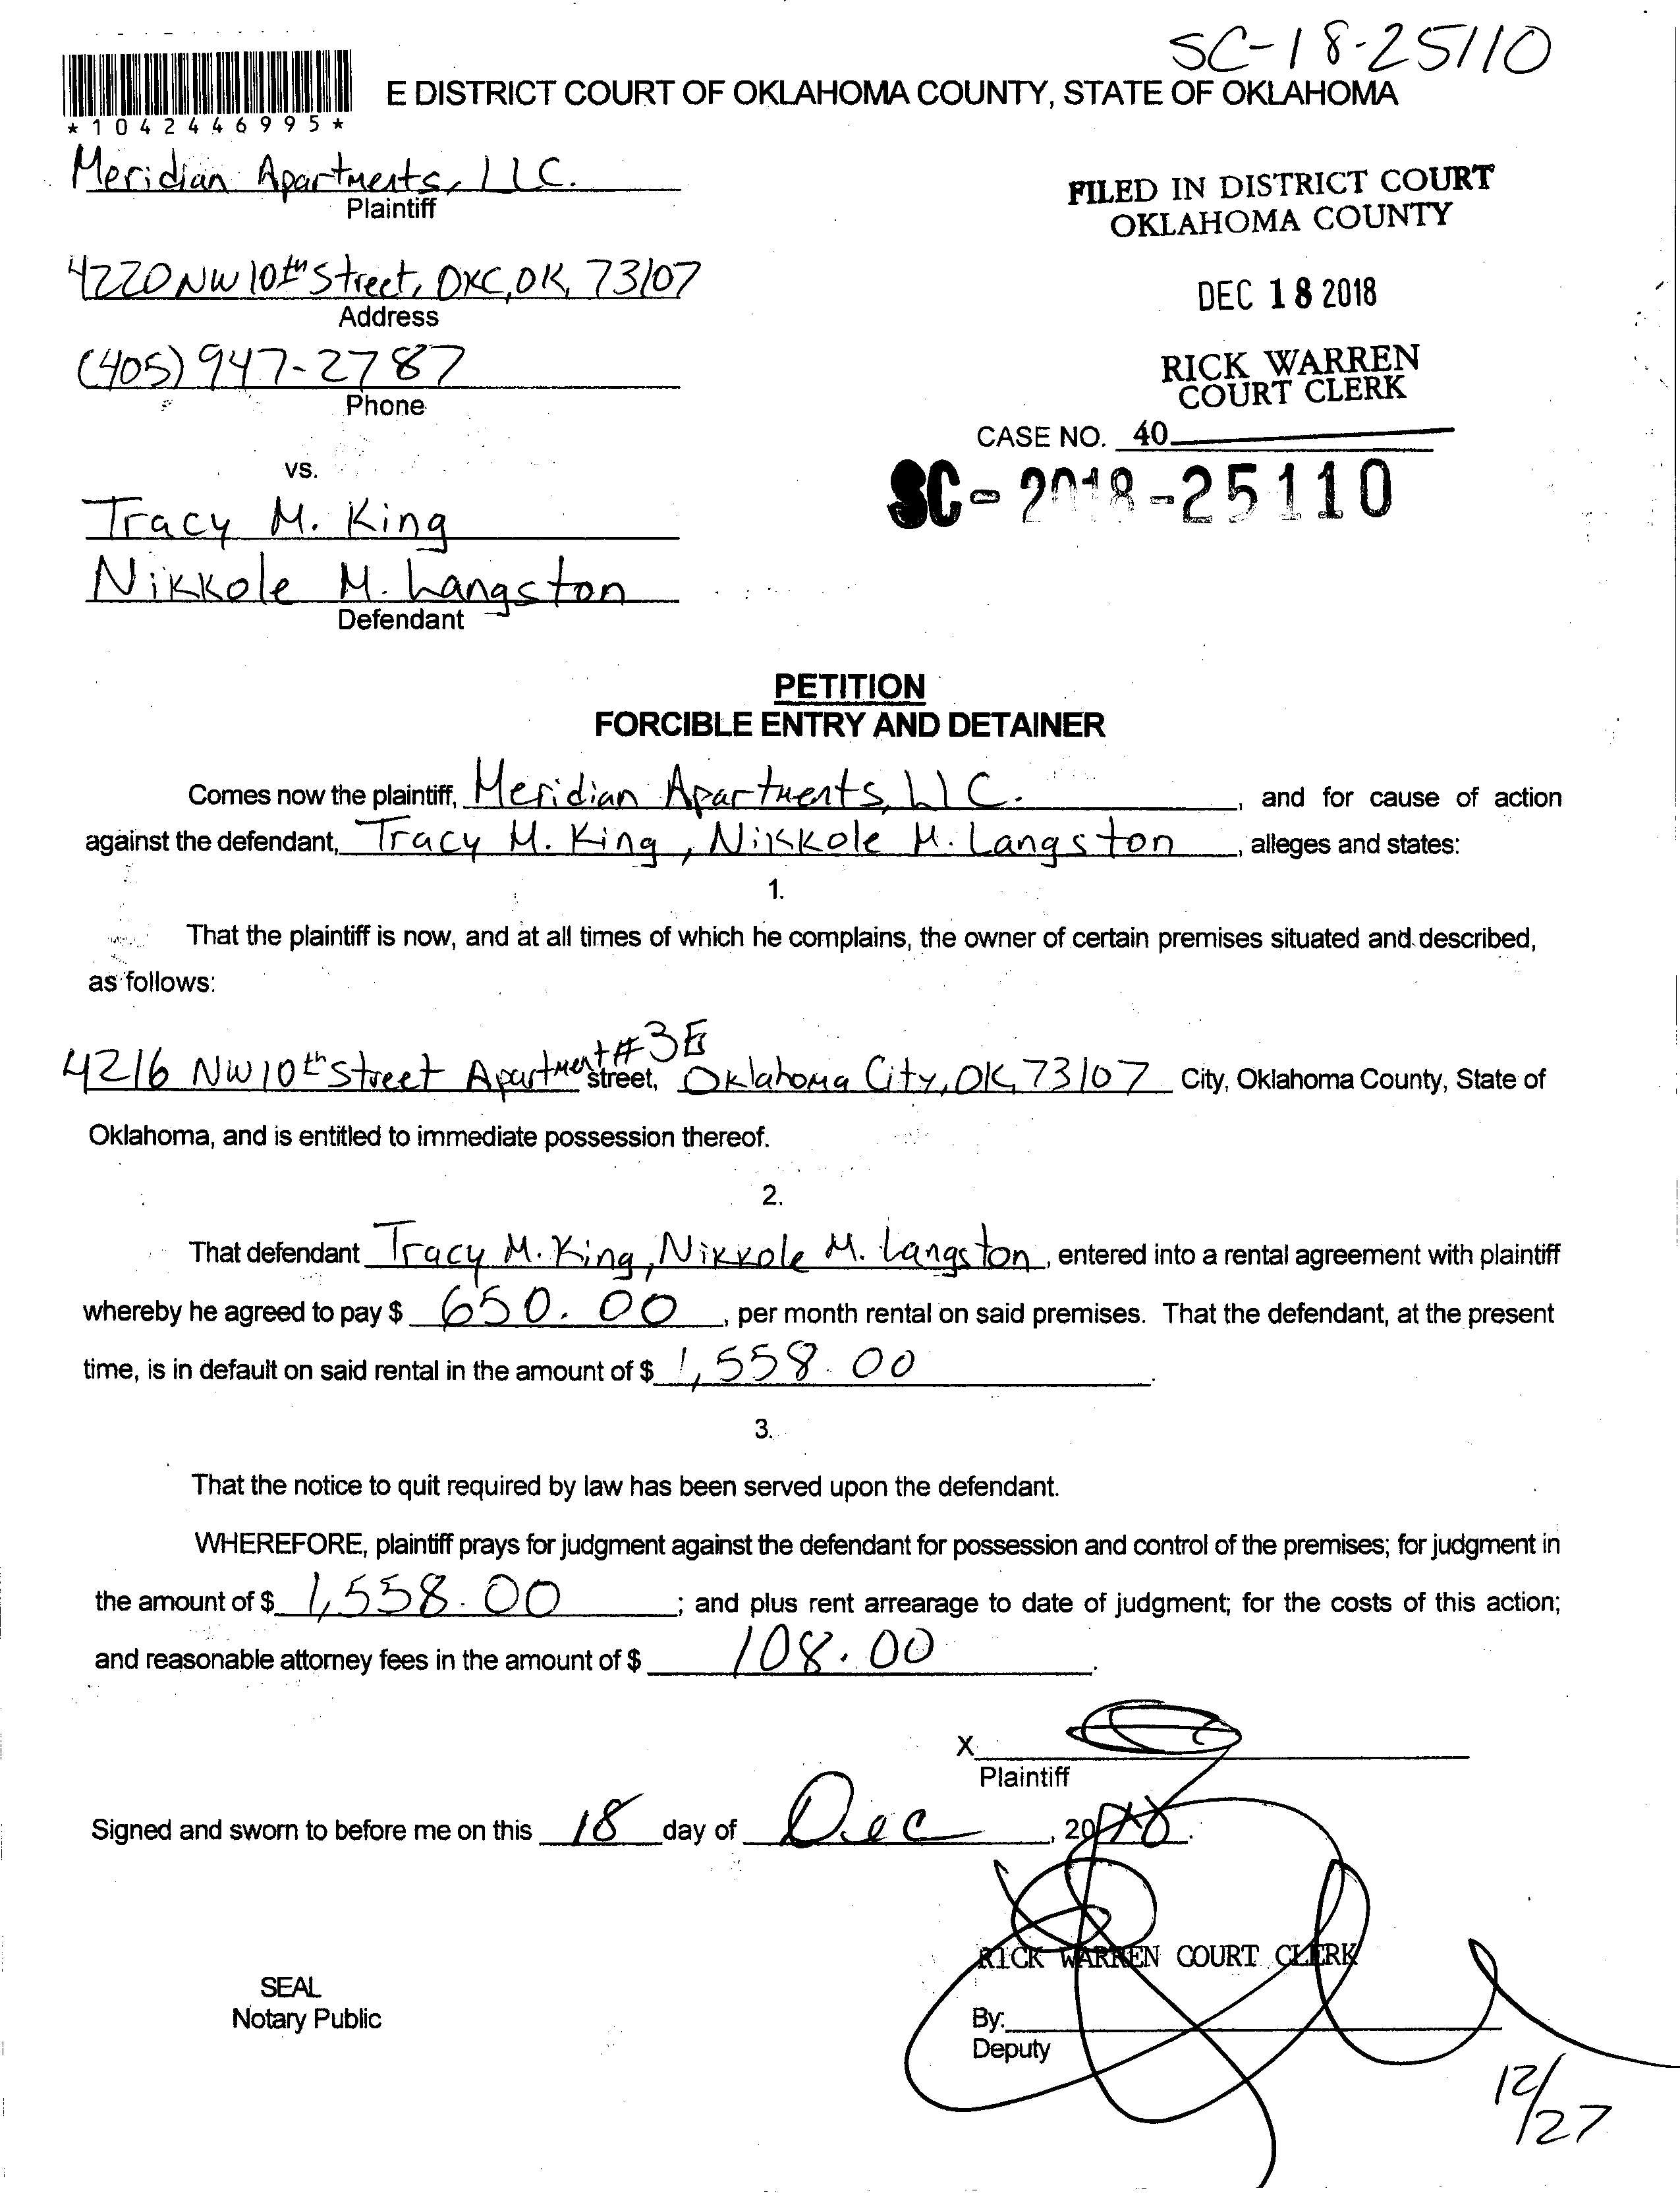 SC-18-25110
E DISTRICT COURT OF OKLAHOMA COUNTY, STATE OF OKLAHOMA
*1042446995*
Meridian Apartments, LLC.
Plaintiff
FILED IN DISTRICT COURT
OKLAHOMA COUNTY
4220 NW 10th Street, OKC, OK, 73107
Address
DEC 18 2018
(405) 947-2787
Phone
RICK WARREN
COURT CLERK
CASE NO. 40
vs.
SC-2018-25110
Tracy M. King
Nikkole M. Langston
Defendant
PETITION
FORCIBLE ENTRY AND DETAINER
Comes now the plaintiff, Meridian Apartments, LLC. , and for cause of action
against the defendant, Tracy M. King, Nikkole M. Langston , alleges and states:
1.
That the plaintiff is now, and at all times of which he complains, the owner of certain premises situated and described,
as follows:
4216 NW 10th Street Apartment #3E street, Oklahoma City, OK, 73107 City, Oklahoma County, State of
Oklahoma, and is entitled to immediate possession thereof.
2.
That defendant Tracy M. King, Nikkole M. Langston , entered into a rental agreement with plaintiff
whereby he agreed to pay $ 650.00 , per month rental on said premises. That the defendant, at the present
time, is in default on said rental in the amount of $ 1,558.00 .
3.
That the notice to quit required by law has been served upon the defendant.
WHEREFORE, plaintiff prays for judgment against the defendant for possession and control of the premises; for judgment in
the amount of $ 1,558.00 ; and plus rent arrearage to date of judgment; for the costs of this action;
and reasonable attorney fees in the amount of $ 108.00 .
X
Plaintiff
Signed and sworn to before me on this 18 day of Dec , 2018.
RICK WARREN COURT CLERK
SEAL
Notary Public
By:
Deputy
12/27